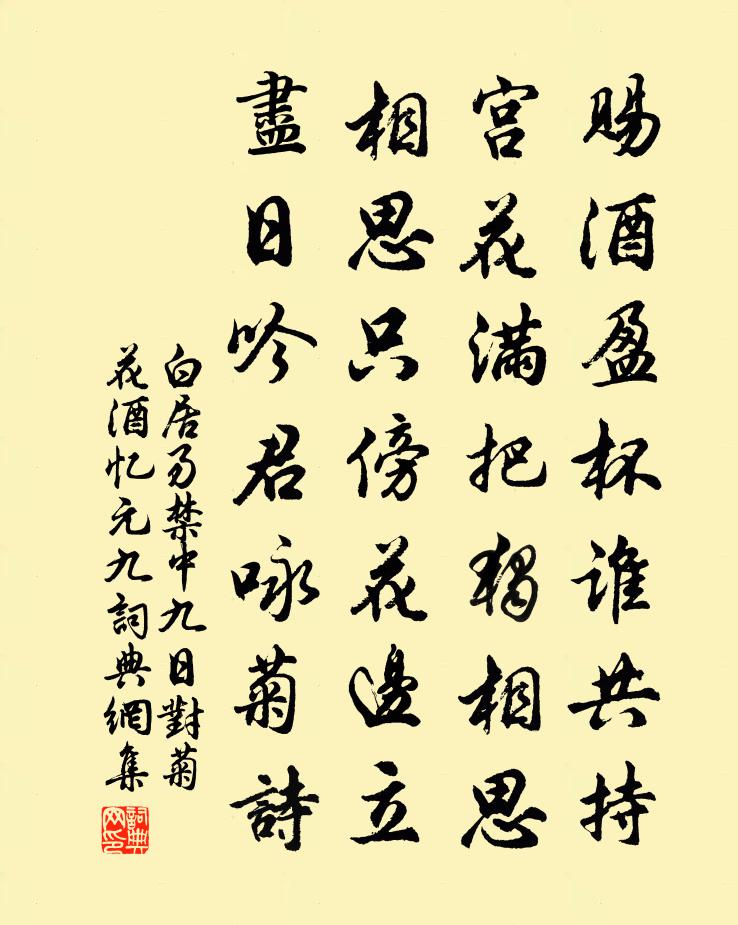 賜酒盈杯誰共持
宮花滿把獨相思
相思只傍花邊立
盡日吟君咏菊詩
白居易禁中九日對菊
花酒忆元九詞典網集
詞典
网印